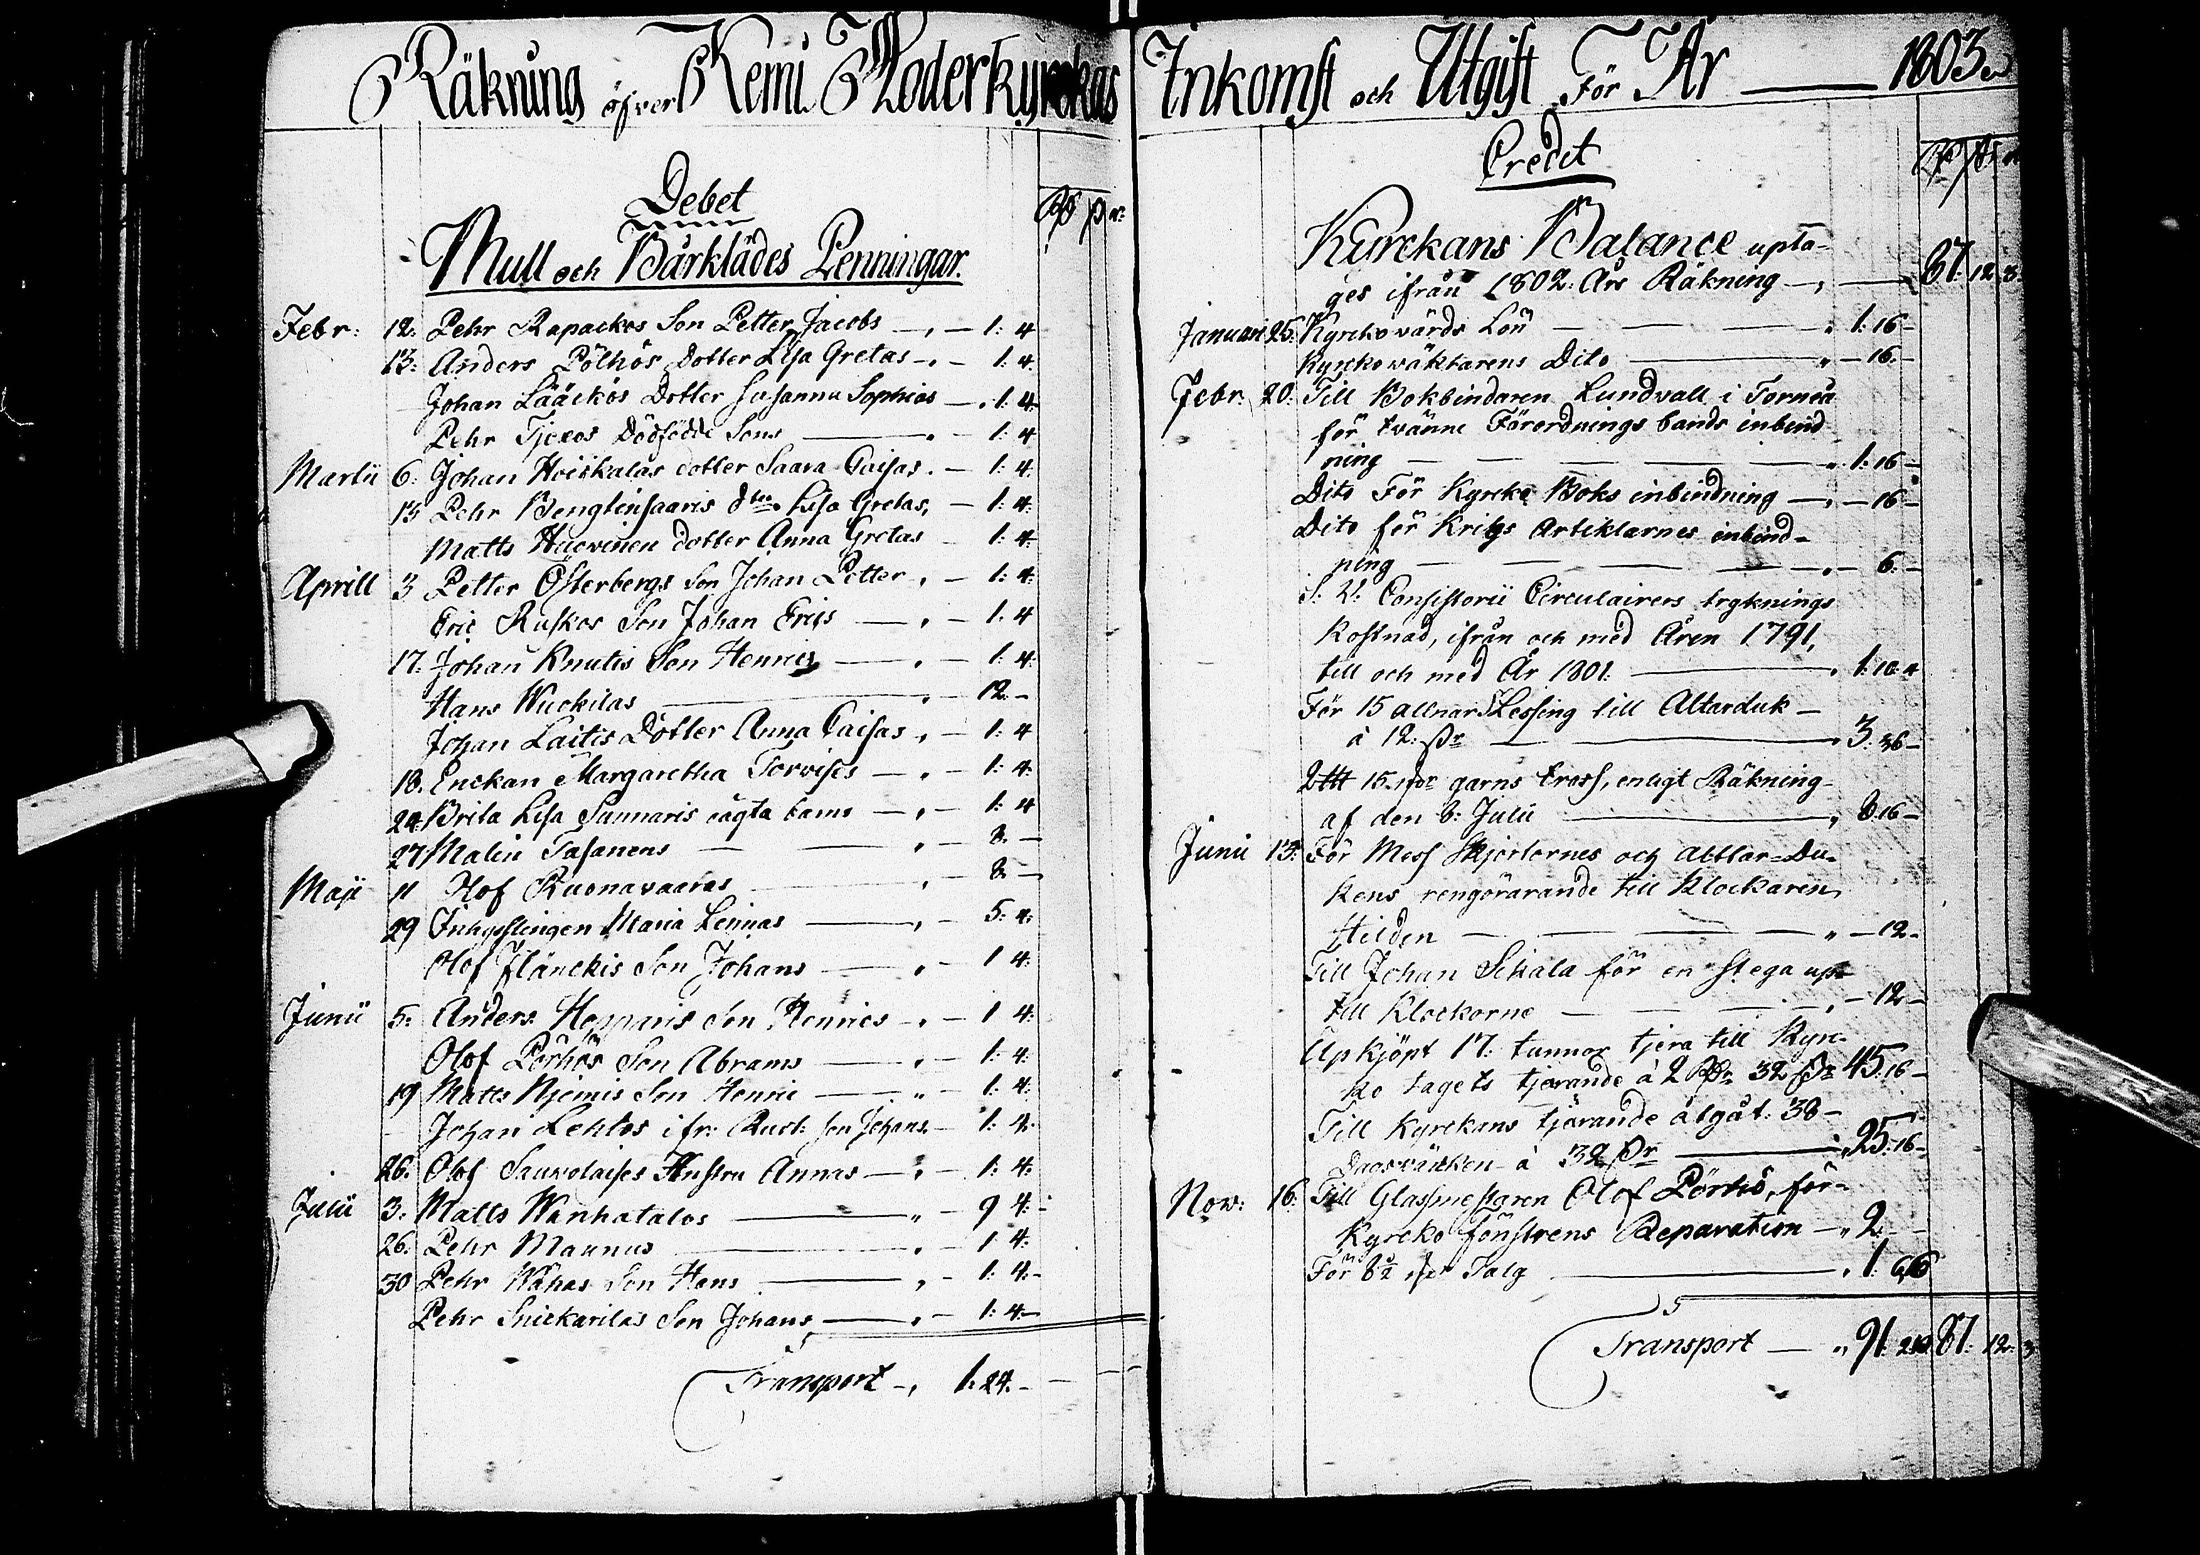 Räkning öfver Kemi Moderkyrckas Inkomst och Utgift För År 1803
Debet
Mull och Bårklädes Penningar.
Febr: 12: Pehr Rapackos Son Petter Jacobs 1: 4
13: Anders Pölhös Dotter Lisa Gretas 1: 4.
Johan Lääckös Dotter Susanna Sophias 1: 4
Pehr Dödfödde Sons 1: 4
Martii 6: Johan Hoiskalas dotter Saara Caisas 1: 4:
13 Pehr Bengtinsaaris dtr Lisa Gretas, 1: 4:
Matts Huovinen dotter Anna Gretas 1: 4:
Aprill 3 Petter Österbergs Son Johan Petter 1: 4:
Eric Ruskos Son Johan Erics 1: 4
17. Johan Knutis Son Henrics 1: 4:
Hans Wuokilas 12:
Johan Laitis Dotter Anna Caisas 1: 4
18. Enckan Margaretha Torvises 1: 4:
24 Brita Lisa Sunnaris oägta barns 1: 4
27 Malin Tasanens 8.
Maji 11 Olof Ruonavaaras 8.
29 Inhysslingen Maria Leinas 5: 4:
Olof Flänckis Son Johans 1 4:
Junii 5: Anders Hepparis Son Henrics 1 4:
Olof Pörhös Son Abrams 1: 4:
19 Matts Njemis Son Henric 1: 4:
Johan Lehtos ifr: Rust: Son Johans 1: 4:
26. Olof Sauvolaises Hustru Annas 1: 4:
Julii 3: Matts Wanhatalos 9 4:
26. Pehr Maunus 1 4:
30 Pehr Wähas Son Hans 1: 4:
Pehr Snickarilas Son Johans 1: 4
Transport 1: 24.
Credit
Kyrckans Balance upta-
ges ifrån 1802: Års Räkning 87 12 3
Januari 25: Kyrckovärds Lön 1: 16
Kyrckowäktarens Dito 16.
Febr: 20: Till Bokbindaren Lundvall i Torneå
för tvänne Förordnings bands inbind
ning 1: 16
Dito För Kyrcko Boks inbindning 16
Dito för Krigs Artiklarnes inbind-
ning 6.
S: V: Consistorii Circulairers trycknings
kostnad, ifrån och med Åren 1791,
till och med År 1801. 1: 10
För 15 allnar Lessing till Altarduk
à 12: 3: 36
15 garns tross, enligt Räkning
af den 8: Julii 8 16
Junii 13: För Mess Skjortornes och Alttar-Du-
kens rengörarande till Klockaren
Heiden 12
Till Johan Sihala för en stega up
till Klockorne 12
Upkjöpt 17: tunnor tjera till Kyrc-
ko tagets tjärande à 2 32 45: 16
Till Kyrckans tjärande åtgåt: 38
Dagsvärcken à 32 25: 16
Nov: 16: Till Glasmestaren Olof Pörhö, för
Kyrcko fönstrens Reparation 2
För 8½ Talg 1:
Transport 91. 87: 12: 3